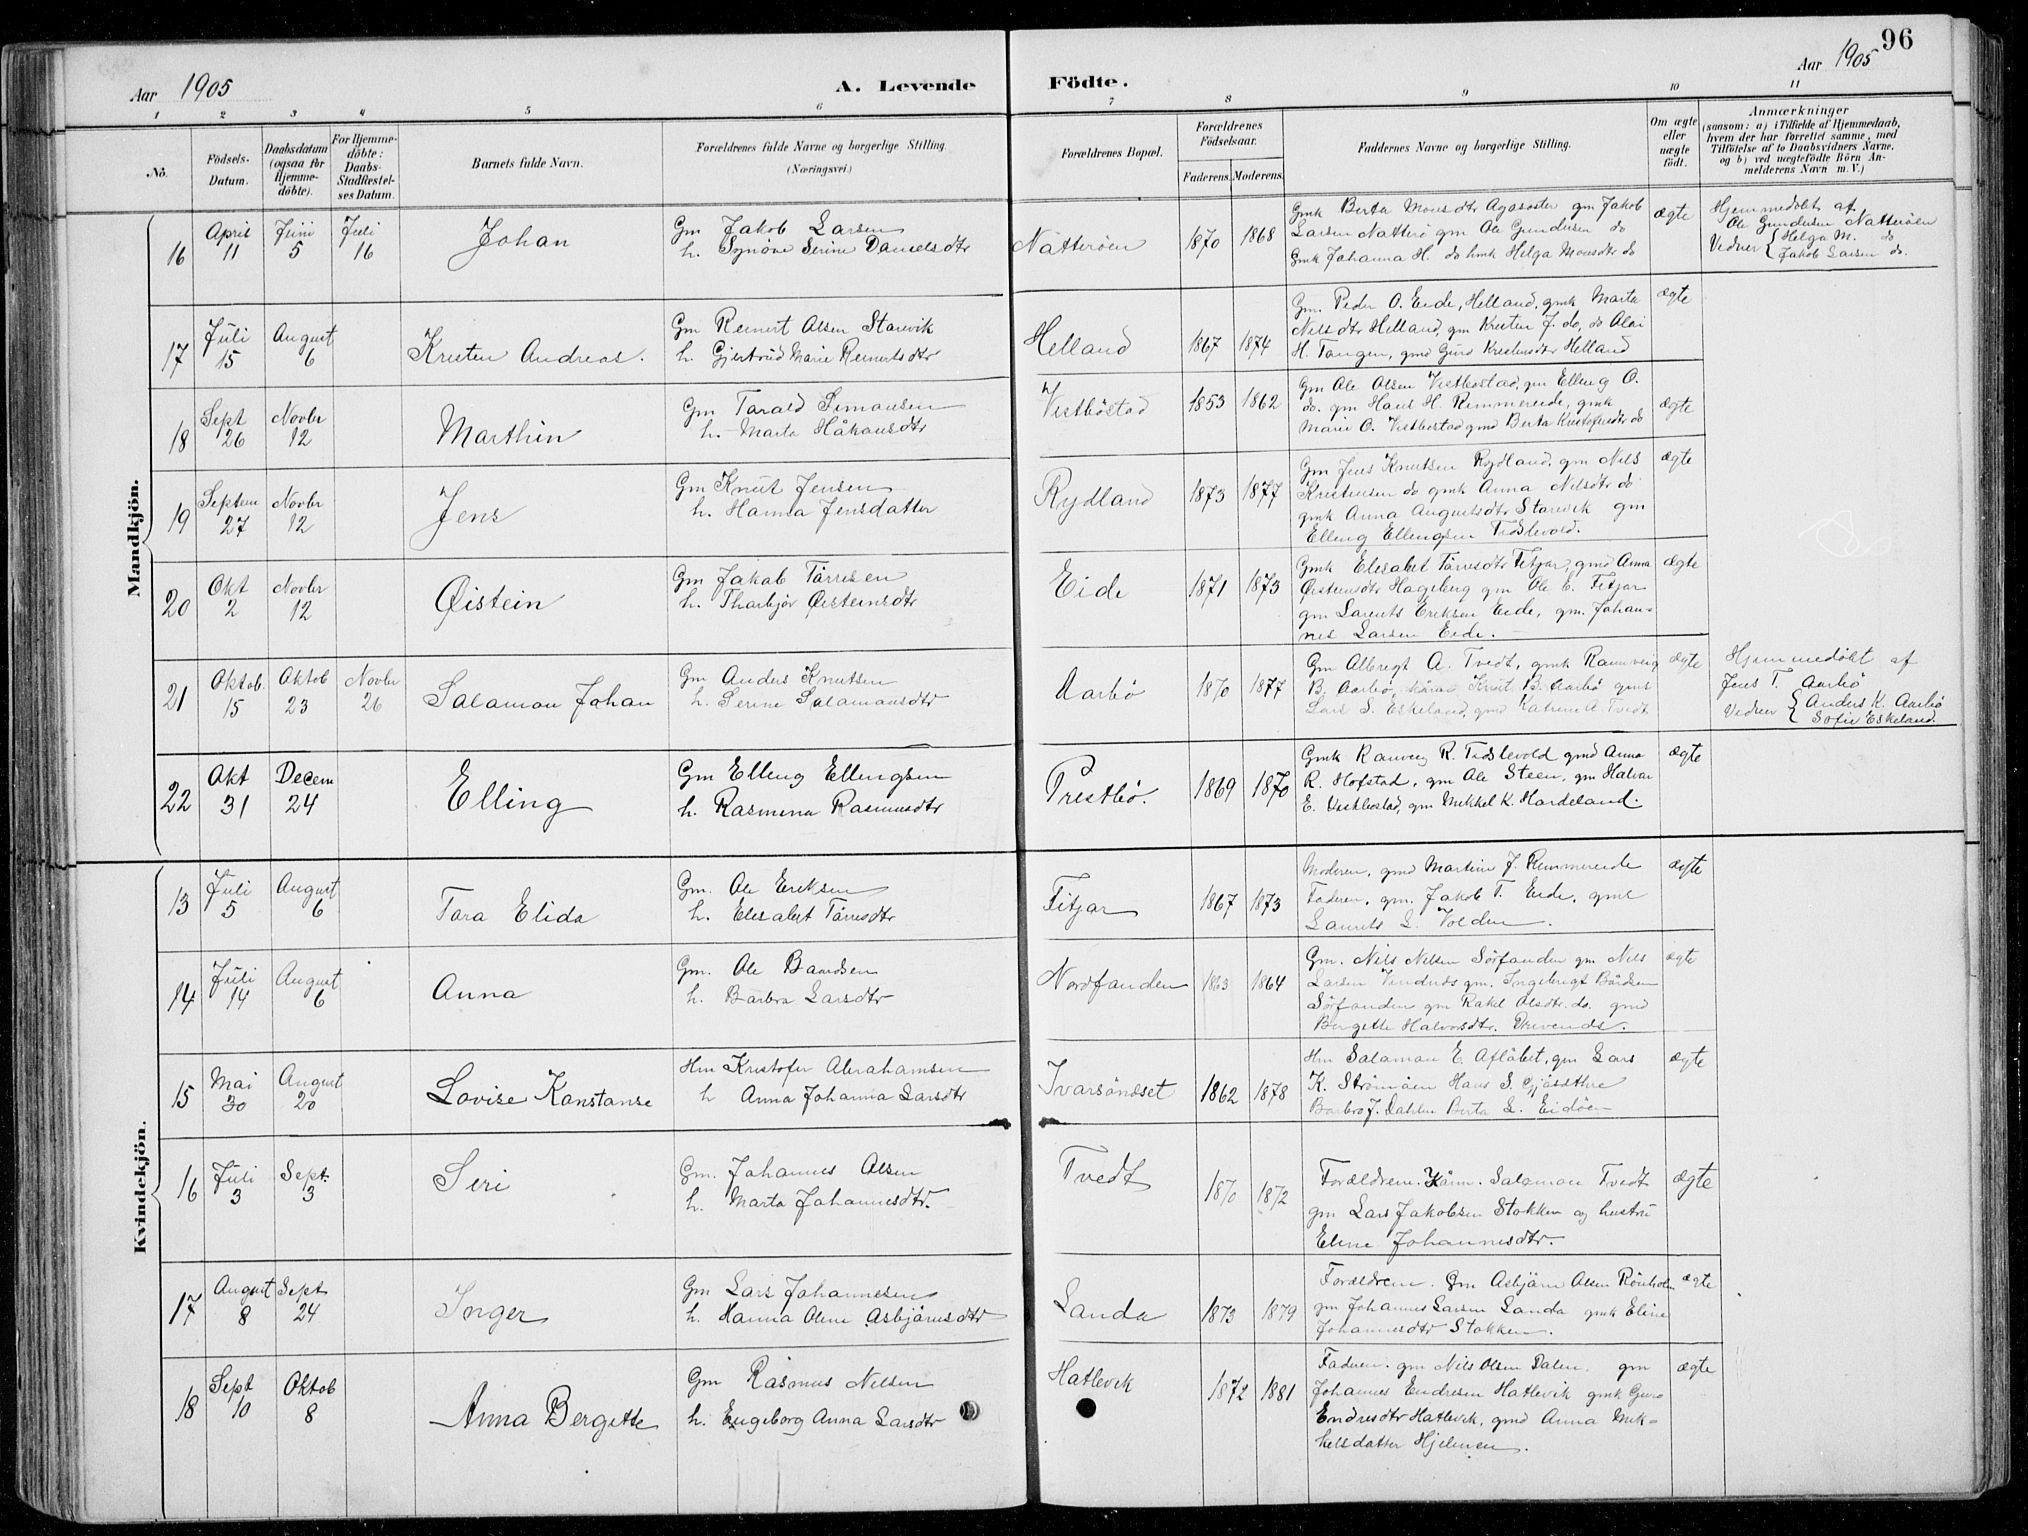 96
Aar 1905
A. Levende Födte.
Aar 1905
1 2 3 4 5 6 7 8 9 10 11
No.
Födsels-Datum.
Daabsdatum (ogsaa for Hjemme-döbte).
For Hjemme-döbte: Daabs-Stadfæstel-ses Datum.
Barnets fulde Navn.
Forældrenes fulde Navne og borgerlige Stilling.
(Næringsvei.)
Forældrenes Bopæl.
Forældrenes Födselsaar.
Faderens. Moderens.
Faddernes Navne og borgerlige Stilling.
Om ægte eller uægte födt.
Anmærkninger
(saasom: a) i Tilfælde af Hjemmedaab,
hvem der har forrettet samme, med
Tilföielse af to Daabsvidners Navne,
og b) ved uægtefödte Börn An-
melderens Navn m. V.)
Mandkjön.
16 April 11 Juni 5 Juli 16 Johan
Gm Jakob Larsen
h. Synöve Serine Danielsdtr
Natteröen 1870 1868
Gmk Berta Monsdtr Agasöster gm Jakob
Larsen Natterö gm Ole Gundersen do
Gmk Johanna H. do hmk Helga Monsdtr do
ægte
Hjemmedöbt af
Ole Gundersen Natteröen
Vidner { Helga M. do
Jakob Larsen do.
17 Juli 15 August 6 Kristen Andreas.
Gm Reinert Olsen Starevik
h. Gjertrud Marie Reinertsdtr
Helland 1867 1874
Gm. Peder O. Eide, Helland, gmk Marta
Nilsdtr Helland, gm Kristen J. do, do Olai
H. Tangen, gmd Guro Kristensdtr Helland
ægte
18 Sept 26 Novbr 12 Marthin
Gm Tarald Simonsen
h. Marta Håkonsdtr
Vestböstad 1853 1862
Gm Ole Olsen Vestbostad, gm Elling O.
do. gm Hans H. Rimmereide, gmk
Marie O. Vestbostad gmd Berta Kristofersdtr do
ægte
19 Septem 27 Novbr 12 Jens
Gm Knut Jensen
h. Hanna Jensdatter
Rydland 1873 1877
Gm Jens Knutsen Rydland, gm Nils
Kristensen do gmk Anna Nilsdtr do
gmk Anna Augustsdtr Starevik gm
Elling Ellingsen Tislevold.
ægte
20 Okt 2 Novbr 12 Øistein
Gm Jakob Törresen
h. Thorbjör Øisteinsdtr
Eide 1871 1873
Gmk Elisabet Törresdtr Fitjar, gmd Anna
Øisteinsdtr Hageberg gm Ole E. Fitjar
gm Laurits Eriksen Eide, gm. Johan-
nes Larsen Eide.
ægte
21 Oktob. 15 Oktob 23 Novbr 26 Salamon Johan
Gm Anders Knutsen
h. Serine Salamonsdtr
Aarbö 1870 1877
Gm Albregt A. Tvedt, gmk Rannveig
B. Aarbö, Knut B. Aarbö gm
Lars S. Eskeland, gmd Katrine A. Tvedt
ægte
Hjemmedöbt af
Jens T. Aarbö
Vidner { Anders K. Aarbö
Sofie Eskeland.
22 Okt 31 Decem 24 Elling
Gm Elling Ellingsen
h. Rasmina Rasmusdtr
Prestbö. 1869 1870
Gmk Ranveig R. Tislevold gmd Anna
R. Hofstad, gm Ole Steen, gm Halvar
E. Vestbostad, gm Mikkel K. Hardeland.
ægte
Kvindekjön.
13 Juli 5 August 6 Tora Elida
Gm. Ole Eriksen
h. Elisabet Törresdtr
Fitjar 1867 1873
Moderen, gmd Martine J. Rimmereide
Faderen, gm. Jakob T. Eide, gm
Laurits L. Volden.
ægte
14 Juli 14 August 6 Anna
Gm. Ole Baardsen
h. Barbra Larsdtr
Nordfanden 1863 1864
Gm. Nils Nilsen Sörfanden gm Nils
Larsen Vindnes gm. Ingebrigt Bårdsen
Sörfanden gm Rakel Olsdtr. do. gmd
Bergitte Halvorsdtr. Drevends.
ægte
15 Mai 30 August 20 Lovise Konstanse
Hm Kristofer Abrahamsen
h Anna Johanna Larsdtr
Ivarsöndset 1862 1878
Hm Salamon E. Aflöbet, gm Lars
K. Strömöen Hans S.
Barbro J. Dahlen Berta L. Eidöen
ægte
16 Juli 3 Sept. 3 Siri
Gm. Johannes Olsen
h. Marta Johannesdtr.
Tvedt 1870 1872
Forældrene. Salamon Tvedt
gm Lars Jakobsen Stokken og hustru
Eline Johannesdtr.
ægte
17 August 8 Sept 24 Inger
Gm Lars Johannesen
h. Hanna Oline Asbjörnsdtr
Landa 1873 1879
Forældrene. Gm Asbjörn Olsen Rönholm
gm Johannes Larsen Landa gmk Eline
Johannesdtr Stokken.
ægte
18 Sept 10 Oktob 8 Anna Bergitte
Gm Rasmus Nilsen
h. Engeborg Anna Larsdtr
Hatlevik 1872 1881
Faderen. gm Nils Olsen Dalen, gm
Johannes Endresen Hatlevik gmk Guro
Endresdtr Hatlevik, gmd Anna Mik-
kelsdatter Hjelmen.
ægte